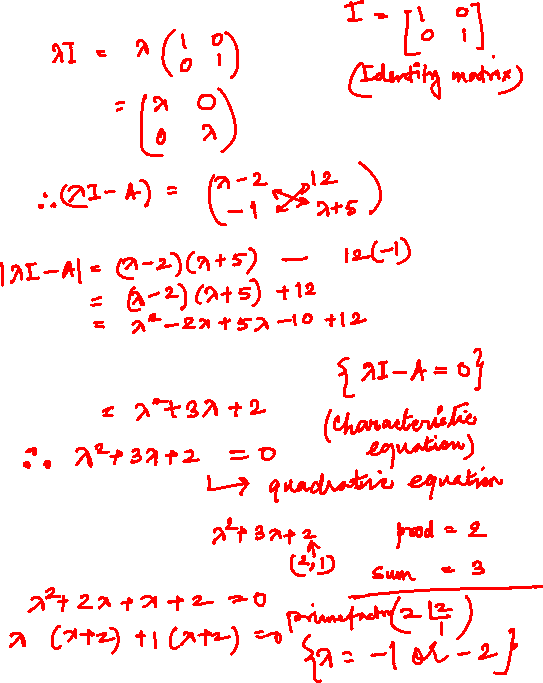 λI = λ (1 0
0 1)
I = [1 0
0 1]
(Identity matrix)
= (λ 0
0 λ)
∴ (λI - A) = (λ-2 12
-1 λ+5)
|λI-A| = (λ-2)(λ+5) - 12(-1)
= (λ-2)(λ+5) +12
= λ²-2λ+5λ-10+12
{λI-A=0}
= λ²+3λ+2
(Characteristic
equation)
∴ λ²+3λ+2 = 0
↳ quadratic equation
λ²+3λ+2
(2,1)
prod = 2
sum = 3
λ²+2λ+λ+2 = 0
primefactor (2|2
1)
λ (λ+2) +1 (λ+2) = 0
{λ = -1 or -2}